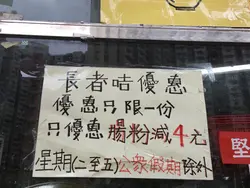 長者咭優惠
優惠只限一份
只優惠腸粉減4元
星期(二至五)公眾假期除外
堅